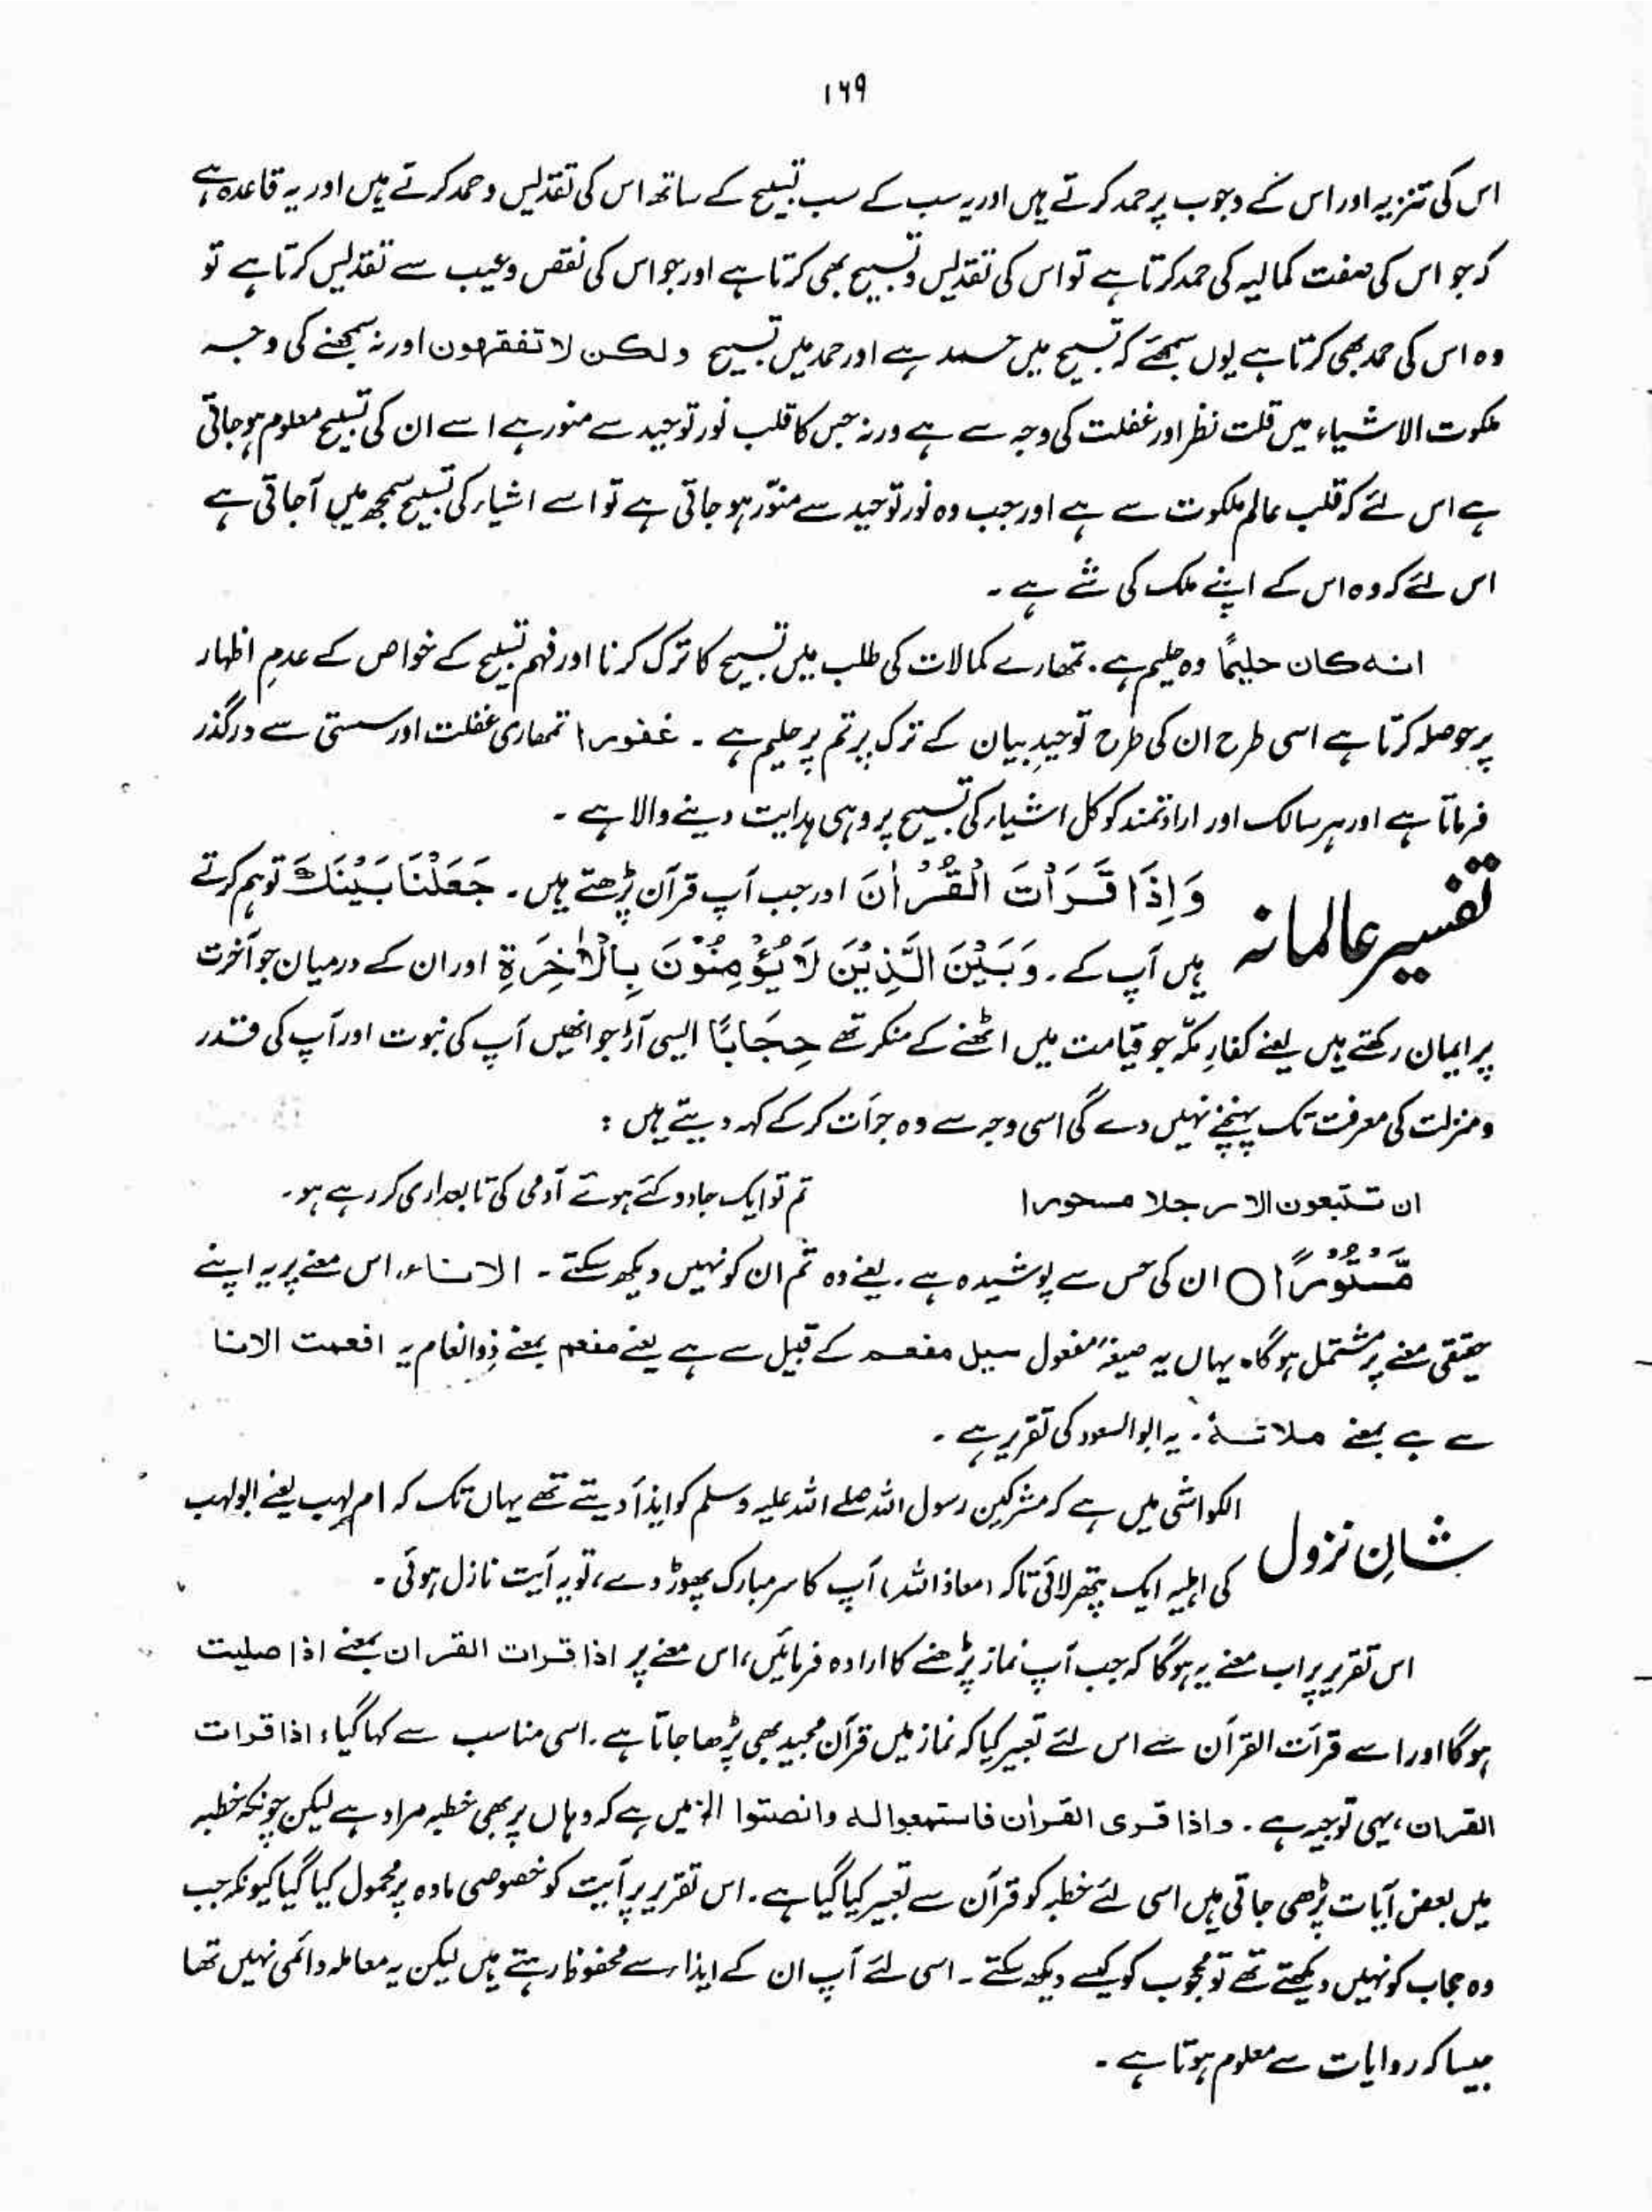 ۱۶۹
اس کی تنزیہ اور اس کے وجوب پر حمد کرتے ہیں اور یہ سب کے سب تسبیح کے ساتھ اس کی تقدیس و حمد کرتے ہیں اور یہ قاعدہ ہے
کہ جو اس کی صفت کمالیہ کی حمد کرتا ہے تو اس کی تقدیس و تسبیح بھی کرتا ہے اور جو اس کی نقص و عیب سے تقدیس کرتا ہے تو
وہ اس کی حمد بھی کرتا ہے یوں سمجھئے کہ تسبیح میں حمد ہے اور حمد میں تسبیح ولکن لا تفقهون اور نہ سمجھنے کی وجہ
ملکوت الاشیاء میں قلت نظر اور غفلت کی وجہ سے ہے ورنہ جس کا قلب نور توحید سے منور ہے اسے ان کی تسبیح معلوم ہو جاتی
ہے اس لئے کہ قلب عالم ملکوت سے ہے اور جب وہ نور توحید سے منوّر ہو جاتی ہے تو اسے اشیاء کی تسبیح سمجھ میں آجاتی ہے
اس لئے کہ وہ اس کے اپنے ملک کی شے ہے ۔
انہ کان حلیمًا وہ حلیم ہے ۔ تمھارے کمالات کی طلب میں تسبیح کا ترک کرنا اور فہم تسبیح کے خواص کے عدمِ اظہار
پر حوصلہ کرتا ہے اسی طرح ان کی طرح توحیدِ بیان کے ترک پر تم پر حلیم ہے ۔ غفورا تمھاری غفلت اور سستی سے درگذر
فرماتا ہے اور ہر سالک اور ارادتمند کو کل اشیاء کی تسبیح پر وہی ہدایت دینے والا ہے ۔
تفسیر عالمانہ وَاِذَا قَرَاْتَ الْقُرْاٰنَ اور جب آپ قرآن پڑھتے ہیں ۔ جَعَلْنَا بَيْنَكَ تو ہم کرتے
ہیں آپ کے ۔ وَبَيْنَ الَّذِيْنَ لَا يُؤْمِنُوْنَ بِالْاٰخِرَةِ اور ان کے درمیان جو آخرت
پر ایمان رکھتے ہیں یعنے کفارِ مکّہ جو قیامت میں اٹھنے کے منکر تھے حِجَابًا ایسی آڑ جو انھیں آپ کی نبوت اور آپ کی قدر
و منزلت کی معرفت تک پہنچنے نہیں دے گی اسی وجہ سے وہ جرأت کر کے کہہ دیتے ہیں :
ان تتبعون الا رجلا مسحورا تم تو ایک جادو کئے ہوئے آدمی کی تابعداری کر رہے ہو ۔
مَّسْتُوْرًا ○ ان کی حس سے پوشیدہ ہے ۔ یعنے وہ تم ان کو نہیں دیکھ سکتے ۔ الاناء، اس معنے پر یہ اپنے
حقیقی معنے پر مشتمل ہو گا، یہاں یہ صیغۂ مفعول سیل مفعم کے قبیل سے ہے یعنے مفعم بمعنے ذو انعام یہ افعمت الانا
سے ہے بمعنے ملاتہ ۔ یہ ابوالسعود کی تقریر ہے ۔
شانِ نزول الکواشی میں ہے کہ مشرکین رسول اللہ صلے اللہ علیہ وسلم کو ایذا دیتے تھے یہاں تک کہ ام لہب یعنے ابولہب
کی اہلیہ ایک پتھر لائی تاکہ (معاذ اللہ) آپ کا سر مبارک پھوڑ دے، تو یہ آیت نازل ہوئی ۔
اس تقریر پر اب معنے یہ ہوگا کہ جب آپ نماز پڑھنے کا ارادہ فرمائیں، اس معنے پر اذا قرات القران بمعنے اذا صلیت
ہو گا اور اسے قرآت القرآن سے اس لئے تعبیر کیا کہ نماز میں قرآن مجید بھی پڑھا جاتا ہے ۔ اسی مناسب سے کہا گیا، اذا قرات
القران، یہی توجیہ ہے ۔ واذا قری القراٰن فاستمعوا لہ وانصتوا الخ میں ہے کہ وہاں پر بھی خطبہ مراد ہے لیکن چونکہ خطبہ
میں بعض آیات پڑھی جاتی ہیں اسی لئے خطبہ کو قرآن سے تعبیر کیا گیا ہے ۔ اس تقریر پر آیت کو خصوصی مادہ پر محمول کیا گیا کیونکہ جب
وہ حجاب کو نہیں دیکھتے تھے تو محجوب کو کیسے دیکھ سکتے ۔ اسی لئے آپ ان کے ایذاء سے محفوظ رہتے ہیں لیکن یہ معاملہ دائمی نہیں تھا
جیسا کہ روایات سے معلوم ہوتا ہے ۔